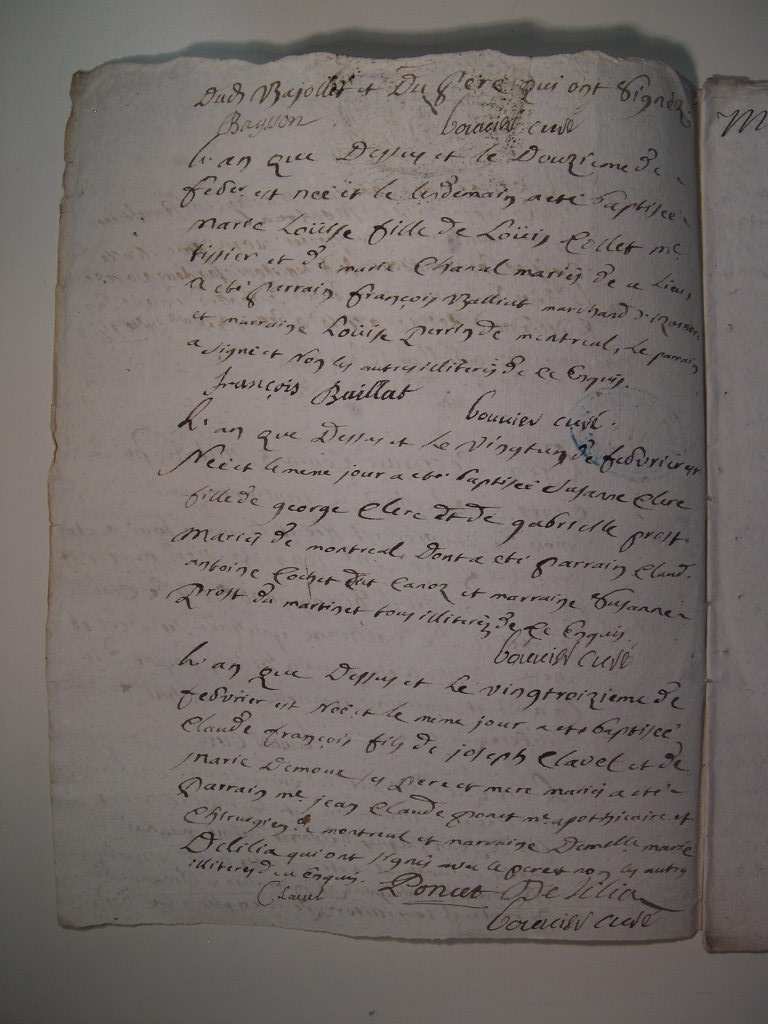 Dud Bajollet et Du père qui ont Signéz
Bayson
bouvier curé
L'an que Dessus et le Douzieme de
fevr. est née et le lendemain a eté baptiseé
marie Loüise fille de Loüis Collet me
tissier et de marie Chanal mariés de a lieu,
a eté parrain françois Balliat marchand
et marraine Loüise perrin de montreal, le parrain
a signé et non les autres illiterés de ce Enquis.
françois Baillat
bouvier curé.
L'an que Dessus et le vingtun de fevrier est
Neé et le meme jour a eté baptiseé Susanne Clerc
fille de george Clerc et de gabrielle prost
mariés de montreal, dont a eté parrain Claud.
antoine Cochet dit Canoz et marraine Susanne
prost du martinet tous illiterés de ce Enquis.
bouvier curé
L'an que Dessus et le vingtroizieme de
fevrier est Neé et le meme jour a eté baptiseé
Claude françois fils de joseph Clavel et de
marie Demoue ses pere et mere mariés a eté
parrain me jean Claude ponet me apothicaire et
Chirurgien de montreal et marraine Demelle marie
Delilia qui ont signés avec le pere et non les autres
illiterés de ce Enquis.
Clavel
Poncet
De lilia
bouvier curé
M